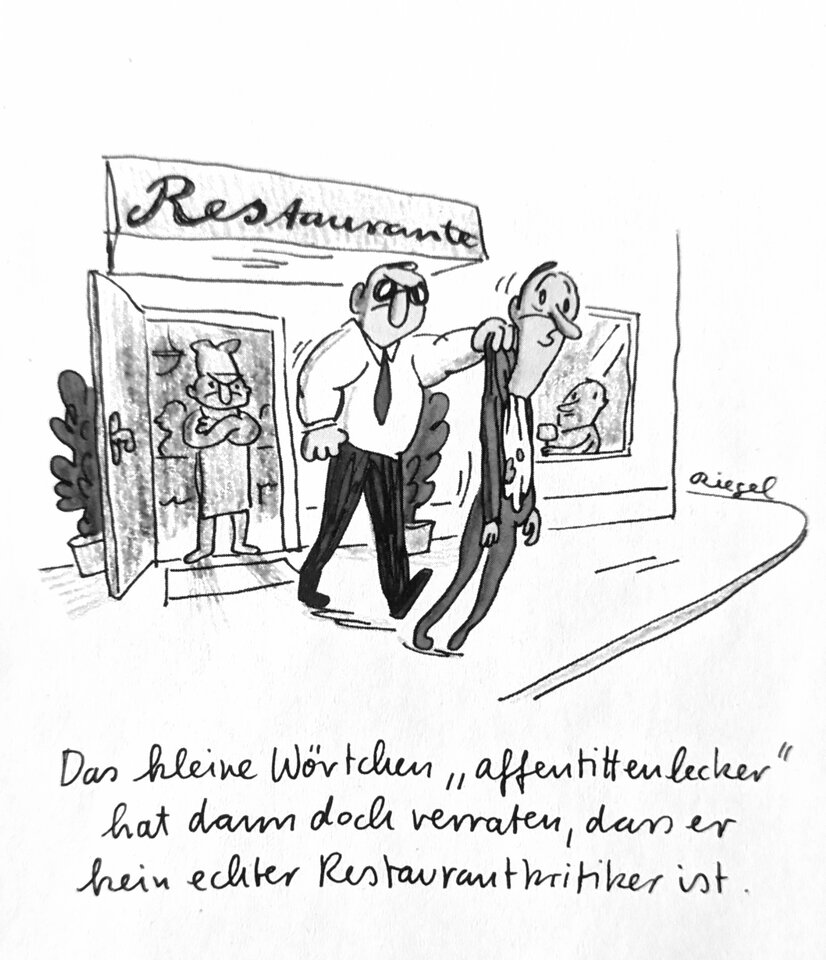 Restaurante
Riegel
Das kleine Wörtchen „affentittenlecker“
hat dann doch verraten, dass er
kein echter Restaurantkritiker ist.